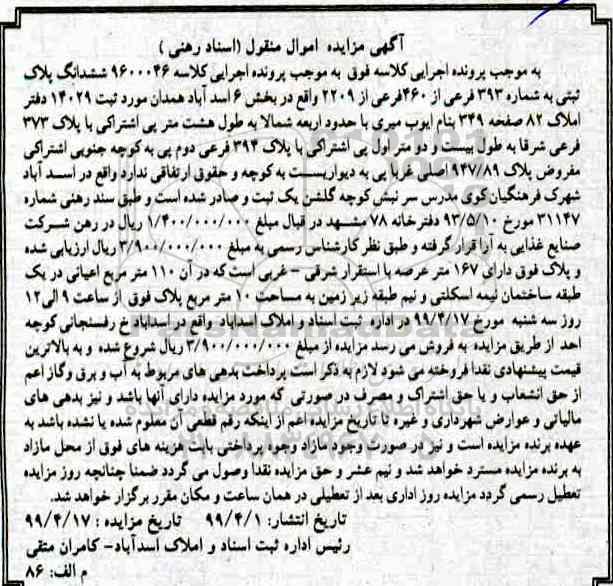 آگهی مزایده اموال منقول (اسناد رهنی)
به موجب پرونده اجرایی کلاسه فوق به موجب پرونده اجرایی کلاسه ۹۶۰۰۰۴۶ ششدانگ پلاک
ثبتی به شماره ۳۹۳ فرعی از ۴۶۰فرعی از ۲۲۰۹ واقع در بخش ۶ اسد آباد همدان مورد ثبت ۱۴۰۲۹ دفتر
املاک ۸۲ صفحه ۳۴۹ بنام ایوب میری با حدود اربعه شمالا به طول هشت متر پی اشتراکی با پلاک ۳۷۳
فرعی شرقا به طول بیست و دو متر اول پی اشتراکی با پلاک ۳۹۴ فرعی دوم پی به کوچه جنوبی اشتراکی
مفروض پلاک ۹۴۷/۸۹ اصلی غربا پی به دیواریست به کوچه و حقوق ارتفاقی ندارد واقع در اسد آباد
شهرک فرهنگیان کوی مدرس سر نبش کوچه گلشن یک ثبت و صادر شده است و طبق سند رهنی شماره
۳۱۱۴۷ مورخ ۹۳/۵/۱۰ دفترخانه ۷۸ مشهد در قبال مبلغ ۱/۴۰۰/۰۰۰/۰۰۰ ریال در رهن شرکت
صنایع غذایی به آرا قرار گرفته و طبق نظر کارشناس رسمی به مبلغ ۳/۹۰۰/۰۰۰/۰۰۰ ریال ارزیابی شده
و پلاک فوق دارای ۱۶۷ متر عرصه با استقرار شرقی - غربی است که در آن ۱۱۰ متر مربع اعیانی در یک
طبقه ساختمان نیمه اسکلتی و نیم طبقه زیر زمین به مساحت ۱۰ متر مربع پلاک فوق از ساعت ۹ الی۱۲
روز سه شنبه مورخ ۹۹/۴/۱۷ در اداره ثبت اسناد و املاک اسداباد واقع در اسداباد خ رفسنجانی کوچه
احد از طریق مزایده به فروش می رسد مزایده از مبلغ ۳/۹۰۰/۰۰۰/۰۰۰ ریال شروع شده و به بالاترین
قیمت پیشنهادی نقدا فروخته می شود لازم به ذکر است پرداخت بدهی های مربوط به آب و برق وگاز اعم
از حق انشعاب و یا حق اشتراک و مصرف در صورتی که مورد مزایده دارای آنها باشد و نیز بدهی های
مالیاتی و عوارض شهرداری و غیره تا تاریخ مزایده اعم از اینکه رقم قطعی آن معلوم شده یا نشده باشد به
عهده برنده مزایده است و نیز در صورت وجود مازاد وجوه پرداختی بابت هزینه های فوق از محل مازاد
به برنده مزایده مسترد خواهد شد و نیم عشر و حق مزایده نقدا وصول می گردد ضمنا چنانچه روز مزایده
تعطیل رسمی گردد مزایده روز اداری بعد از تعطیلی در همان ساعت و مکان مقرر برگزار خواهد شد.
تاریخ انتشار: ۹۹/۴/۱ تاریخ مزایده : ۹۹/۴/۱۷
رئیس اداره ثبت اسناد و املاک اسدآباد- کامران متقی
م الف: ۸۶